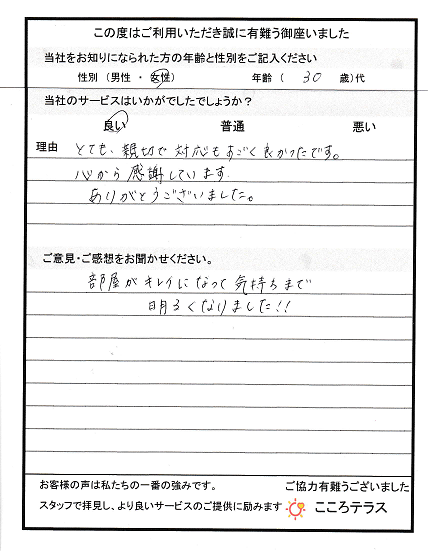 この度はご利用いただき誠に有難う御座いました
当社をお知りになられた方の年齢と性別をご記入ください
性別 (男性 ・ 女性) 年齢 ( 30 歳)代
当社のサービスはいかがでしたでしょうか?
良い 普通 悪い
理由 とても、親切で対応もすごく良かったです。
心から感謝しています
ありがとうございました。
ご意見・ご感想をお聞かせください。
部屋がキレイになって気持ちまで
明るくなりました!!
お客様の声は私たちの一番の強みです。 ご協力有難うございました
スタッフで拝見し、より良いサービスのご提供に励みます こころテラス